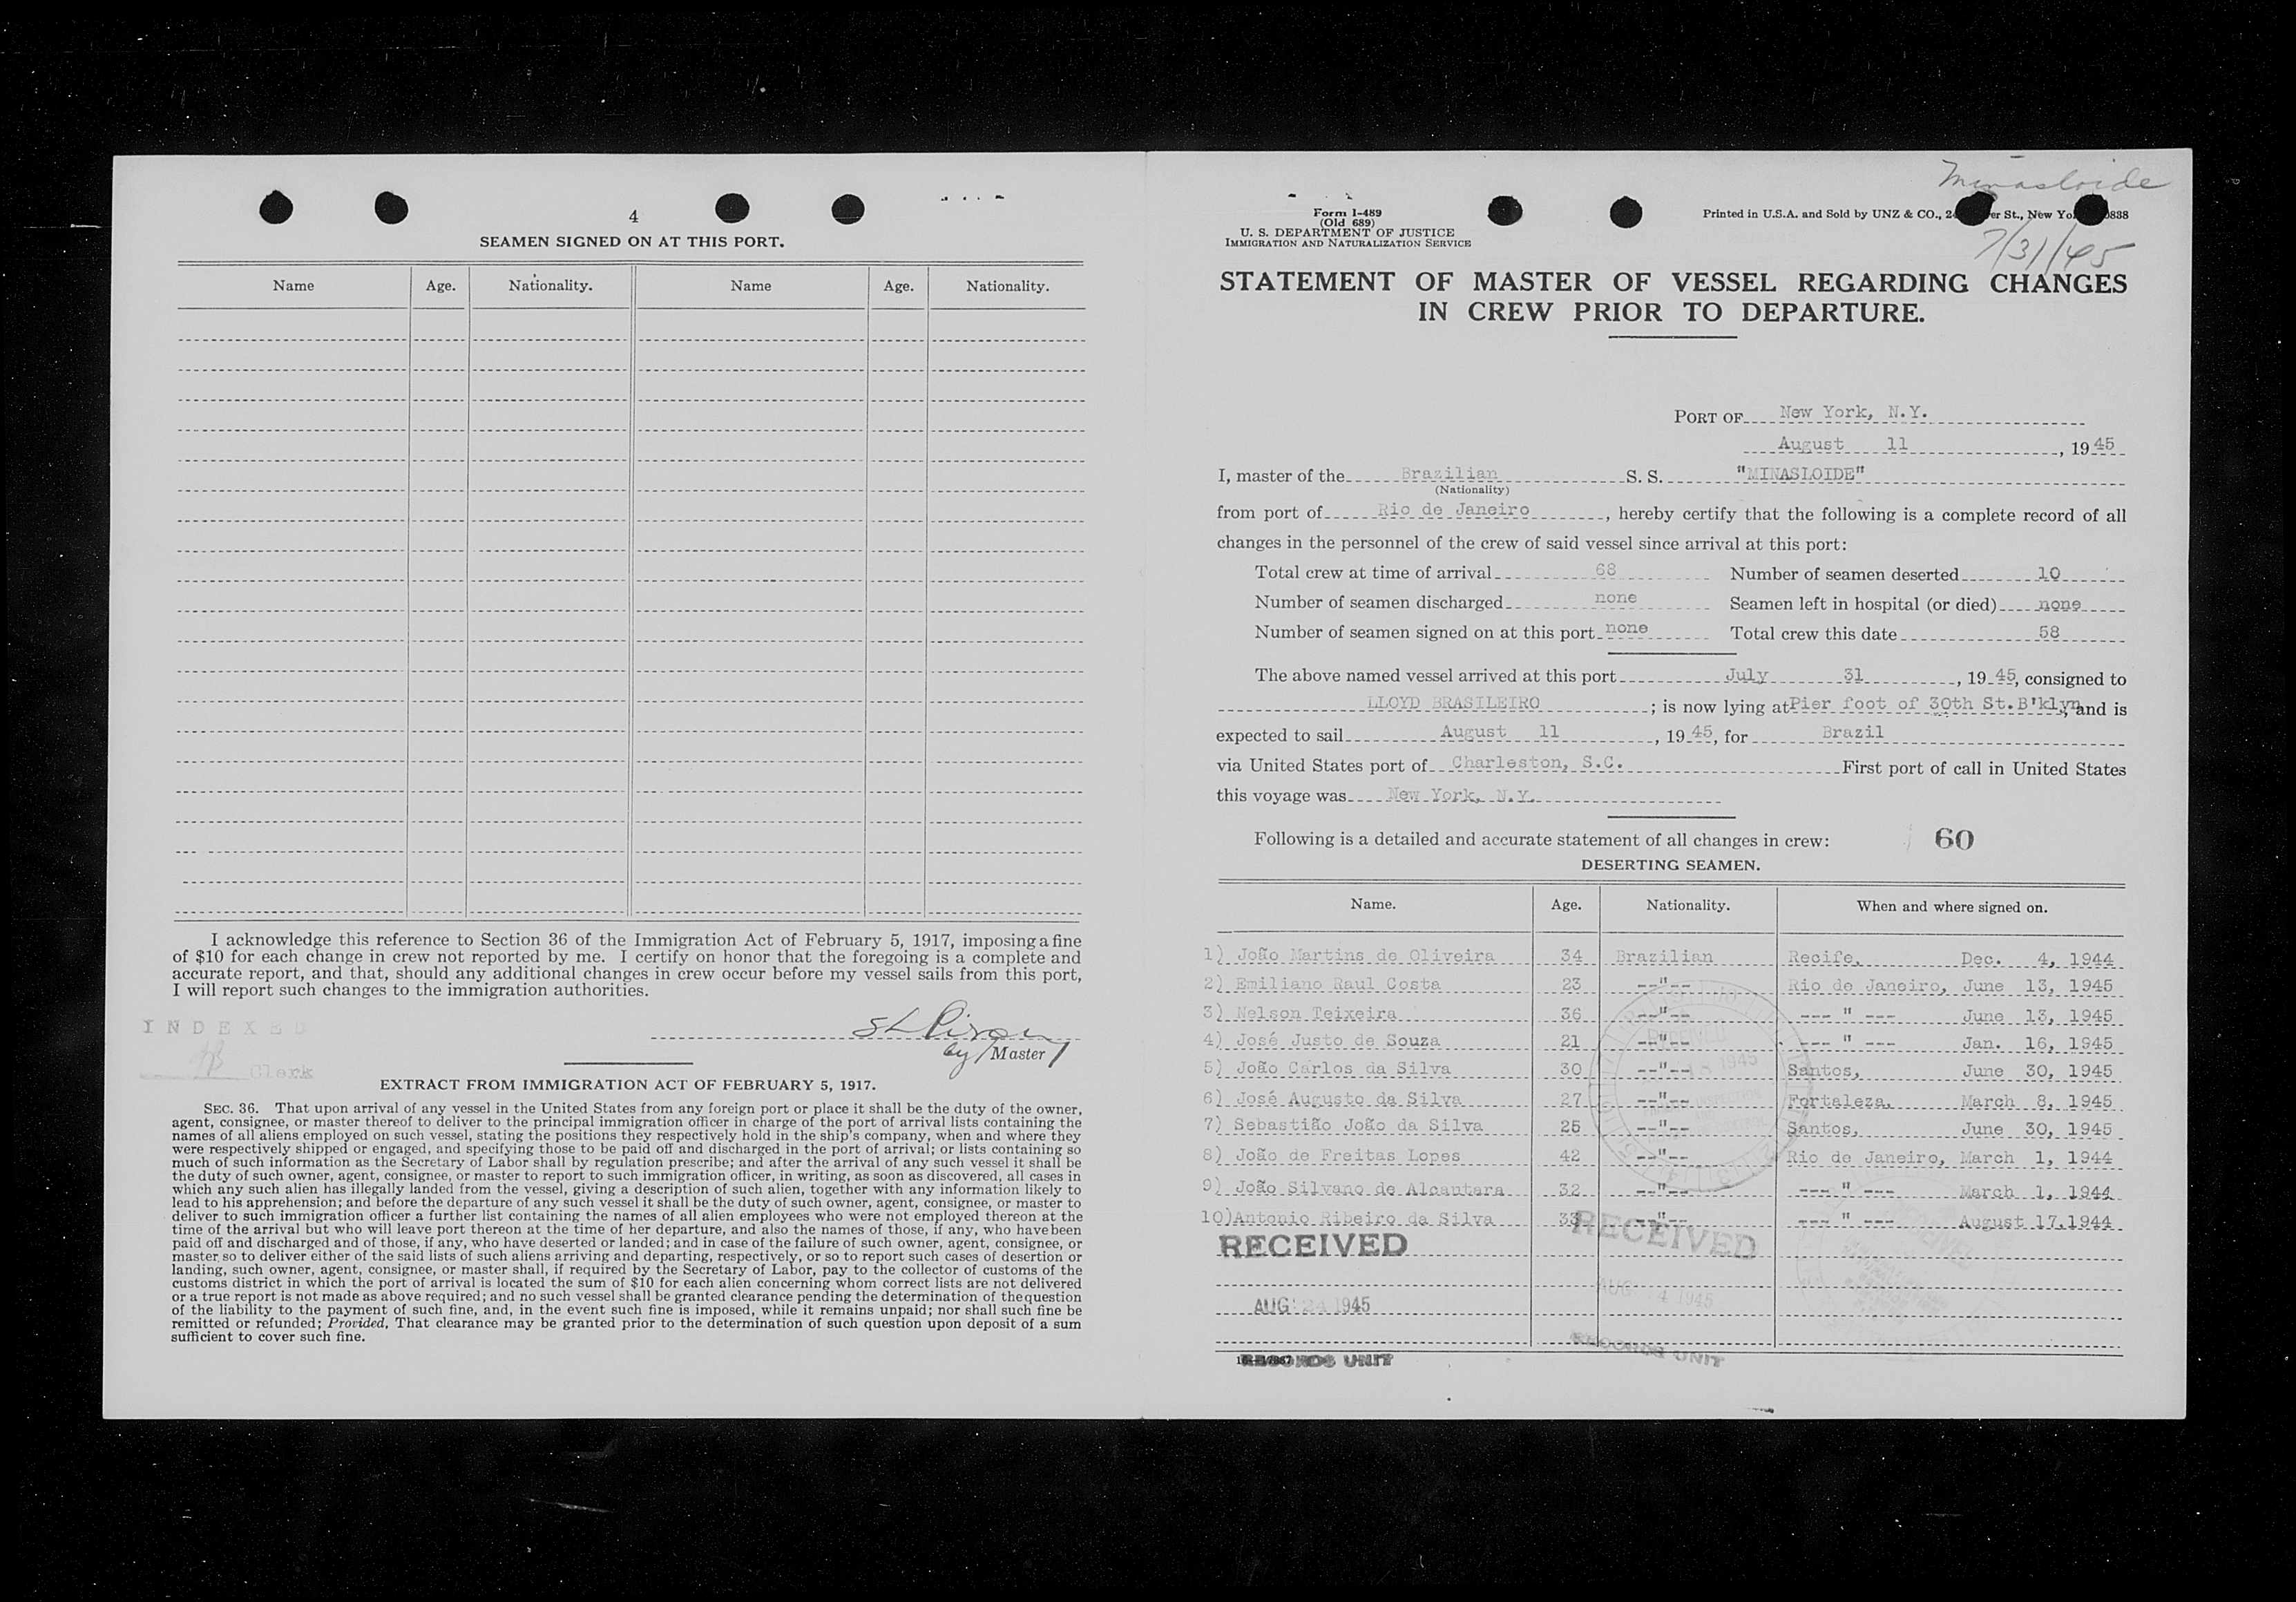 4
SEAMEN SIGNED ON AT THIS PORT.
Name Age. Nationality. Name Age. Nationality.
I acknowledge this reference to Section 36 of the Immigration Act of February 5, 1917, imposing a fine
of $10 for each change in crew not reported by me. I certify on honor that the foregoing is a complete and
accurate report, and that, should any additional changes in crew occur before my vessel sails from this port,
I will report such changes to the immigration authorities.
INDEXED
Clerk
Master
EXTRACT FROM IMMIGRATION ACT OF FEBRUARY 5, 1917.
SEC. 36. That upon arrival of any vessel in the United States from any foreign port or place it shall be the duty of the owner,
agent, consignee, or master thereof to deliver to the principal immigration officer in charge of the port of arrival lists containing the
names of all aliens employed on such vessel, stating the positions they respectively hold in the ship's company, when and where they
were respectively shipped or engaged, and specifying those to be paid off and discharged in the port of arrival; or lists containing so
much of such information as the Secretary of Labor shall by regulation prescribe; and after the arrival of any such vessel it shall be
the duty of such owner, agent, consignee, or master to report to such immigration officer, in writing, as soon as discovered, all cases in
which any such alien has illegally landed from the vessel, giving a description of such alien, together with any information likely to
lead to his apprehension; and before the departure of any such vessel it shall be the duty of such owner, agent, consignee, or master to
deliver to such immigration officer a further list containing the names of all alien employees who were not employed thereon at the
time of the arrival but who will leave port thereon at the time of her departure, and also the names of those, if any, who have been
paid off and discharged and of those, if any, who have deserted or landed; and in case of the failure of such owner, agent, consignee, or
master so to deliver either of the said lists of such aliens arriving and departing, respectively, or so to report such cases of desertion or
landing, such owner, agent, consignee, or master shall, if required by the Secretary of Labor, pay to the collector of customs of the
customs district in which the port of arrival is located the sum of $10 for each alien concerning whom correct lists are not delivered
or a true report is not made as above required; and no such vessel shall be granted clearance pending the determination of the question
of the liability to the payment of such fine, and, in the event such fine is imposed, while it remains unpaid; nor shall such fine be
remitted or refunded; Provided, That clearance may be granted prior to the determination of such question upon deposit of a sum
sufficient to cover such fine.
Minasloide
Form I-489
(Old 689)
U. S. DEPARTMENT OF JUSTICE
IMMIGRATION AND NATURALIZATION SERVICE
Printed in U.S.A. and Sold by UNZ & CO., St., New
7/31/45
STATEMENT OF MASTER OF VESSEL REGARDING CHANGES
IN CREW PRIOR TO DEPARTURE.
PORT OF New York, N.Y.
August 11, 1945
I, master of the Brazilian S. S. "MINASLOIDE"
(Nationality)
from port of Rio de Janeiro, hereby certify that the following is a complete record of all
changes in the personnel of the crew of said vessel since arrival at this port:
Total crew at time of arrival 68 Number of seamen deserted 10
Number of seamen discharged none Seamen left in hospital (or died) none
Number of seamen signed on at this port none Total crew this date 58
The above named vessel arrived at this port July 31, 1945, consigned to
LLOYD BRASILEIRO; is now lying at Pier foot of 30th St. B'klyn, and is
expected to sail August 11, 1945, for Brazil
via United States port of Charleston, S.C. First port of call in United States
this voyage was New York, N.Y.
Following is a detailed and accurate statement of all changes in crew: 60
DESERTING SEAMEN.
Name. Age. Nationality. When and where signed on.
1) João Martins de Oliveira 34 Brazilian Recife, Dec. 4, 1944
2) Emiliano Raul Costa 23 --"-- Rio de Janeiro, June 13, 1945
3) Nelson Teixeira 36 --"-- --- " --- June 13, 1945
4) José Justo de Souza 21 --"-- --- " --- Jan. 16, 1945
5) João Carlos da Silva 30 --"-- Santos, June 30, 1945
6) José Augusto da Silva 27 --"-- Fortaleza, March 8, 1945
7) Sebastião João da Silva 25 --"-- Santos, June 30, 1945
8) João de Freitas Lopes 42 --"-- Rio de Janeiro, March 1, 1944
9) João Silvano de Alcantara 32 --"-- --- " --- March 1, 1944
10) Antonio Ribeiro da Silva 33 --"-- --- " --- August 17, 1944
RECEIVED RECEIVED
AUG 24 1945 AUG 24 1945
RECORDS UNIT RECORDS UNIT